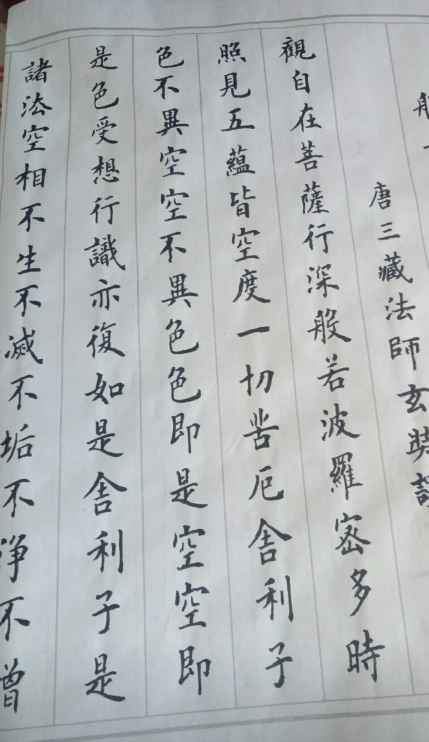 般
唐三藏法師玄奘譯
觀自在菩薩行深般若波羅宻多時
照見五蘊皆空度一切苦厄舍利子
色不異空空不異色色即是空空即
是色受想行識亦復如是舍利子是
諸法空相不生不滅不垢不淨不曾